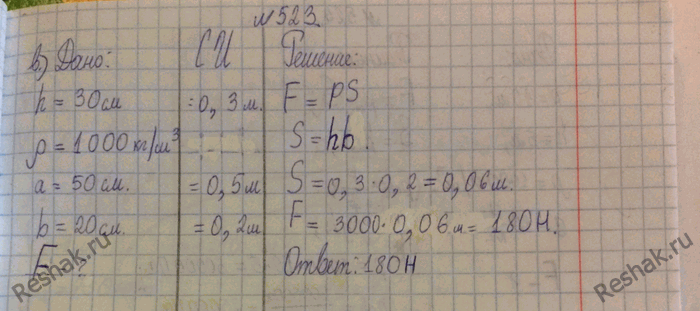 №523.
в) Дано: СИ Решение:
h = 30 см = 0,3 м. F = PS
ρ = 1000 кг/м³ S = hb.
a = 50 см. = 0,5 м S = 0,3·0,2 = 0,06 м.
b = 20 см. = 0,2 м F = 3000·0,06 м = 180 Н.
F Ответ: 180 Н
Reshak.ru
Reshak.ru